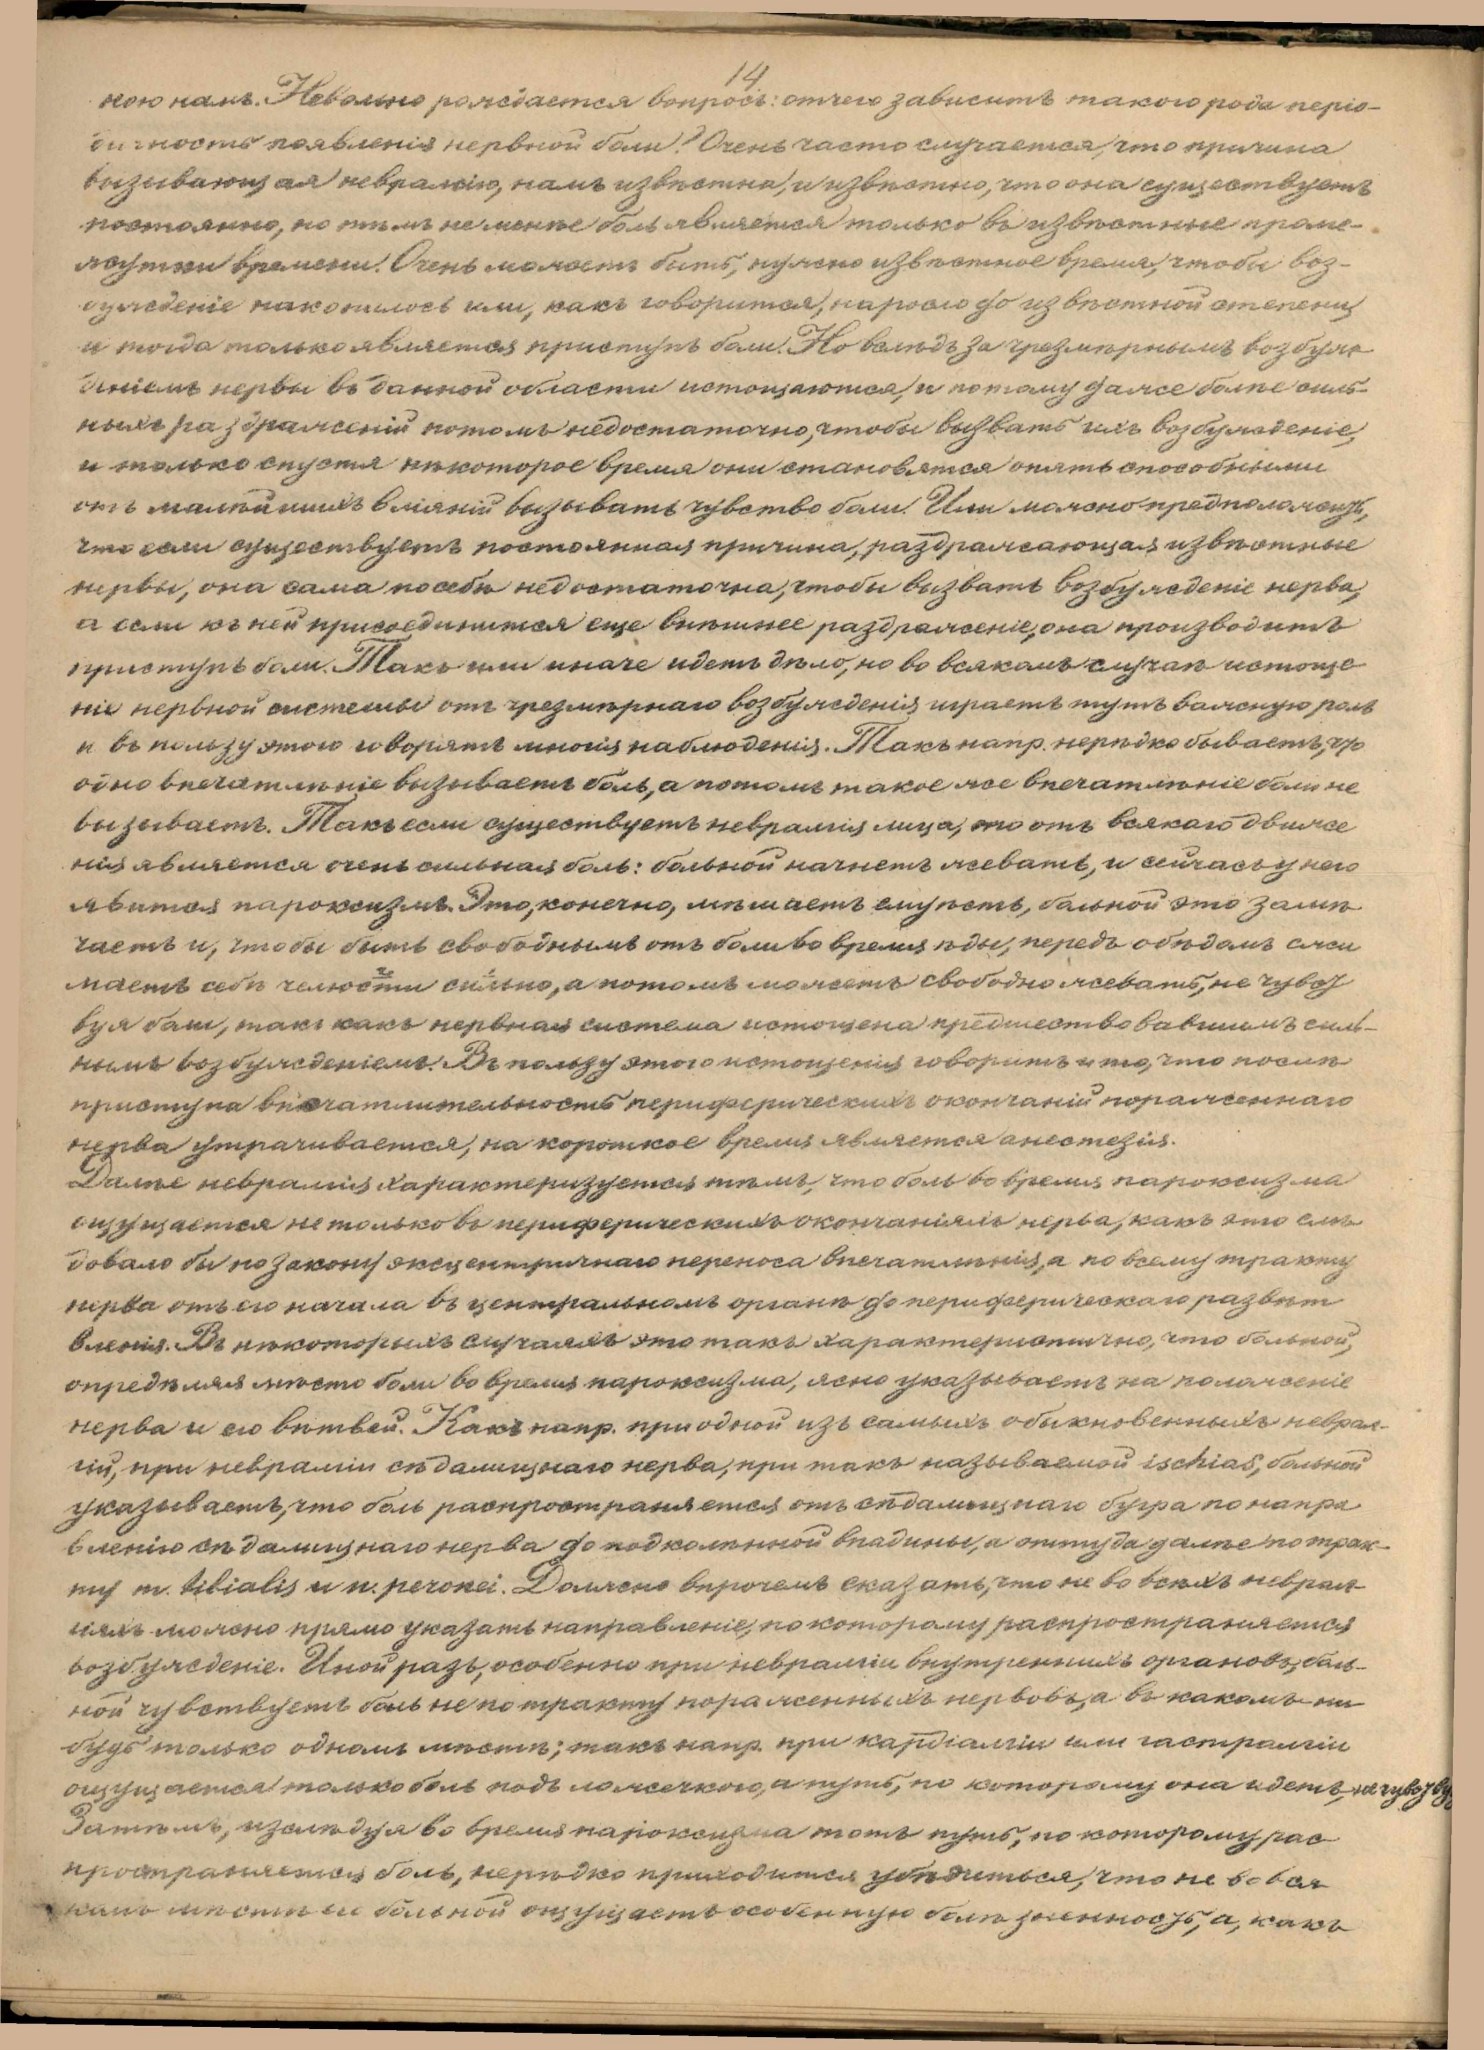 14
ною намъ. Невольно рождается вопросъ: отчего зависитъ такого рода періо-
дичность появленія нервной боли? Очень часто случается, что причина
вызывающая невралгію, намъ извѣстна, и извѣстно, что она существуетъ
постоянно, но тѣмъ не менѣе боль является только въ извѣстные проме-
жутки времени. Очень можетъ быть, нужно извѣстное время, чтобы воз-
бужденіе накопилось или, какъ говорится, наросло до извѣстной степени,
и тогда только является приступъ боли. Но вслѣдъ за чрезмѣрнымъ возбуж
деніемъ нервы въ данной области истощаются, и потому даже болѣе силь-
ныхъ раздраженій потомъ недостаточно, чтобы вызвать ихъ возбужденіе,
и только спустя нѣкоторое время они становятся опять способными
отъ малѣйшихъ вліяній вызывать чувство боли. Или можно предположить,
что если существуетъ постоянная причина, раздражающая извѣстные
нервы, она сама по себѣ недостаточна, чтобы вызвать возбужденіе нерва,
а если къ ней присоединится еще внѣшнее раздраженіе, она производитъ
приступъ боли. Такъ или иначе идетъ дѣло, но во всякомъ случаѣ истоще
ніе нервной системы отъ чрезмѣрнаго возбужденія играетъ тутъ важную роль
и въ пользу этого говорятъ многія наблюденія. Такъ напр. нерѣдко бываетъ, что
одно впечатлѣніе вызываетъ боль, а потомъ такое же впечатлѣніе боли не
вызываетъ. Такъ если существуетъ невралгія лица, то отъ всякаго движе
нія является очень сильная боль: больной начнетъ жевать, и сейчасъ у него
явится пароксизмъ. Это, конечно, мѣшаетъ ему ѣсть, больной это замѣ
чаетъ и, чтобы быть свободнымъ отъ боли во время ѣды, передъ обѣдомъ сжи
маетъ себѣ челюсти сильно, а потомъ можетъ свободно жевать, не чувст
вуя боли, такъ какъ нервная система истощена предшествовавшимъ силь-
нымъ возбужденіемъ. Въ пользу этого истощенія говоритъ и то, что послѣ
приступа впечатлительность периферическихъ окончаній пораженнаго
нерва утрачивается, на короткое время является анестезія.
Далѣе невралгія характеризуется тѣмъ, что боль во время пароксизма
ощущается не только въ периферическихъ окончаніяхъ нерва, какъ это слѣ
довало бы по закону эксцентричнаго переноса впечатлѣнія, а по всему тракту
нерва отъ его начала въ центральномъ органѣ до периферическаго развѣт
вленія. Въ нѣкоторыхъ случаяхъ это такъ характеристично, что больной,
опредѣляя мѣсто боли во время пароксизма, ясно указываетъ на положеніе
нерва и его вѣтвей. Какъ напр. при одной изъ самыхъ обыкновенныхъ неврал-
гій, при невралгіи сѣдалищнаго нерва, при такъ называемой ischias, больной
указываетъ, что боль распространяется отъ сѣдалищнаго бугра по напра
вленію сѣдалищнаго нерва до подколѣнной впадины, а оттуда далѣе по трак-
ту n. tibialis и n. peronei. Должно впрочемъ сказать, что не во всѣхъ неврал-
гіяхъ можно прямо указать направленіе, по которому распространяется
возбужденіе. Иной разъ, особенно при невралгіи внутреннихъ органовъ, боль-
ной чувствуетъ боль не по тракту пораженныхъ нервовъ, а въ какомъ-ни
будь только одномъ мѣстѣ; такъ напр. при кардіалгіи или гастралгіи
ощущается только боль подъ ложечкою, а путь, по которому она идетъ, не чувству
Затѣмъ, изслѣдуя во время пароксизма тотъ путь, по которому рас
пространяется боль, нерѣдко приходится убѣдиться, что не во вся
комъ мѣстѣ больной ощущаетъ особенную болѣзненность, а, какъ